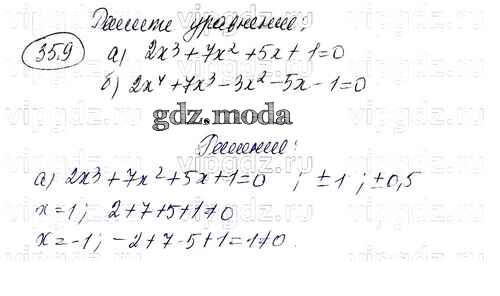 Решите уравнение:
35.9 а) 2x³ + 7x² + 5x + 1 = 0
б) 2x⁴ + 7x³ - 3x² - 5x - 1 = 0
gdz.moda
Решение:
а) 2x³ + 7x² + 5x + 1 = 0 ; ±1 ; ±0,5
x = 1; 2 + 7 + 5 + 1 ≠ 0
x = -1; -2 + 7 - 5 + 1 = 1 ≠ 0.